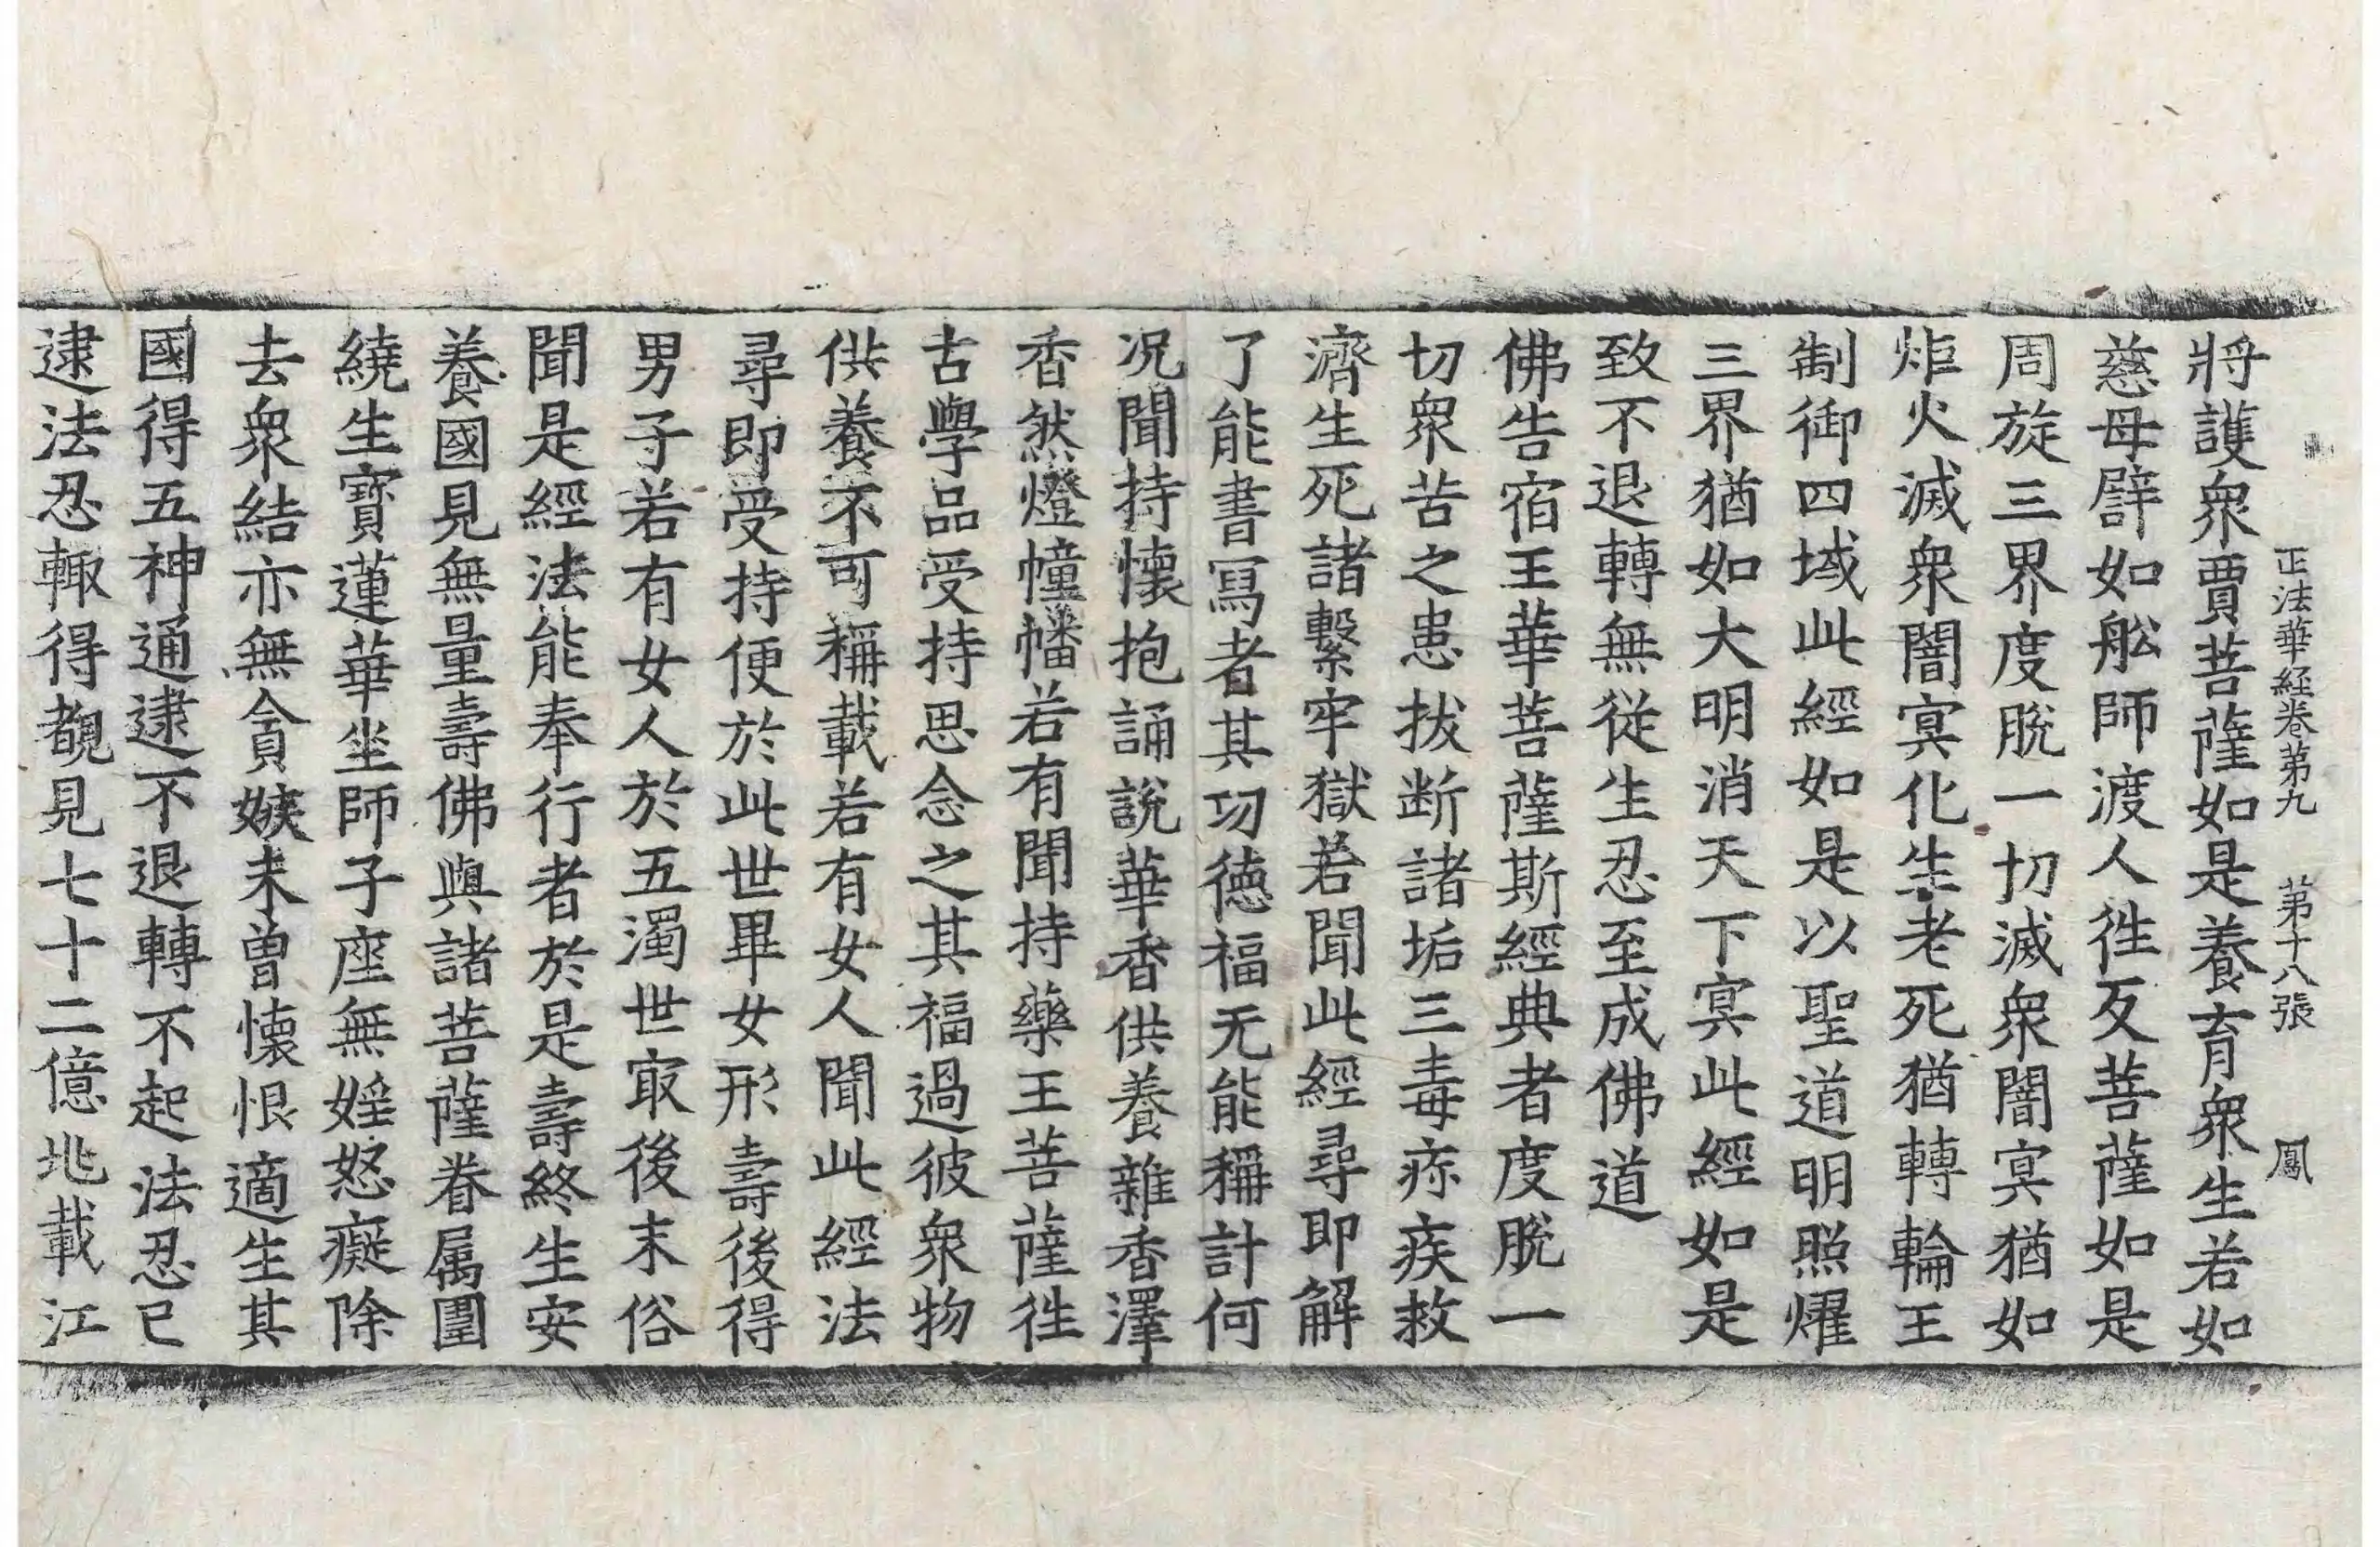 正法華経卷第九 第十八張 鳳
將護衆賈菩薩如是養育衆生若如
慈母譬如舩師渡人徃反菩薩如是
周旋三界度脫一切滅衆闇冥猶如
炬火滅衆闇冥化生老死猶轉輪王
制御四域此經如是以聖道明照燿
三界猶如大明消天下冥此經如是
致不退轉無從生忍至成佛道
佛告宿王華菩薩斯經典者度脫一
切衆苦之患拔断諸垢三毒疹疾救
濟生死諸繫牢獄若聞此經尋即解
了能書寫者其功德福无能稱計何
況聞持懷抱誦說華香供養雜香澤
香然燈幢幡若有聞持藥王菩薩徃
古學品受持思念之其福過彼衆物
供養不可稱載若有女人聞此經法
尋即受持便於此世畢女形壽後得
男子若有女人於五濁世㝡後末俗
聞是經法能奉行者於是壽終生安
養國見無量壽佛與諸菩薩眷属圍
繞生寳蓮華坐師子座無婬怒癡除
去衆結亦無貪嫉未曾懷恨適生其
國得五神通逮不退轉不起法忍已
逮法忍輙得覩見七十二億兆載江